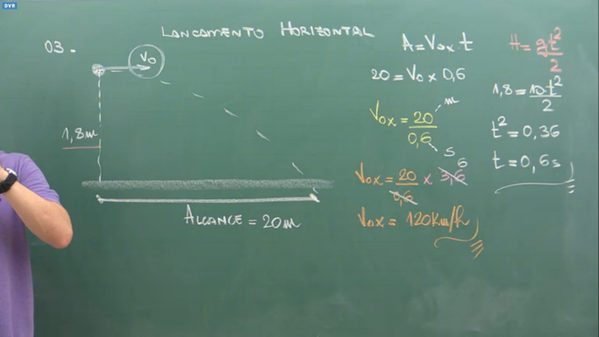 DVR
LANCAMENTO HORIZONTAL
03.
V0
1,8m
ALCANCE = 20m
A = V0x t
20 = V0 x 0,6
V0x = 20 m
0,6 s
V0x = 20 x 3,6 6
0,6
V0x = 120 Km/h
H = gt²
2
1,8 = 10t²
2
t² = 0,36
t = 0,6s